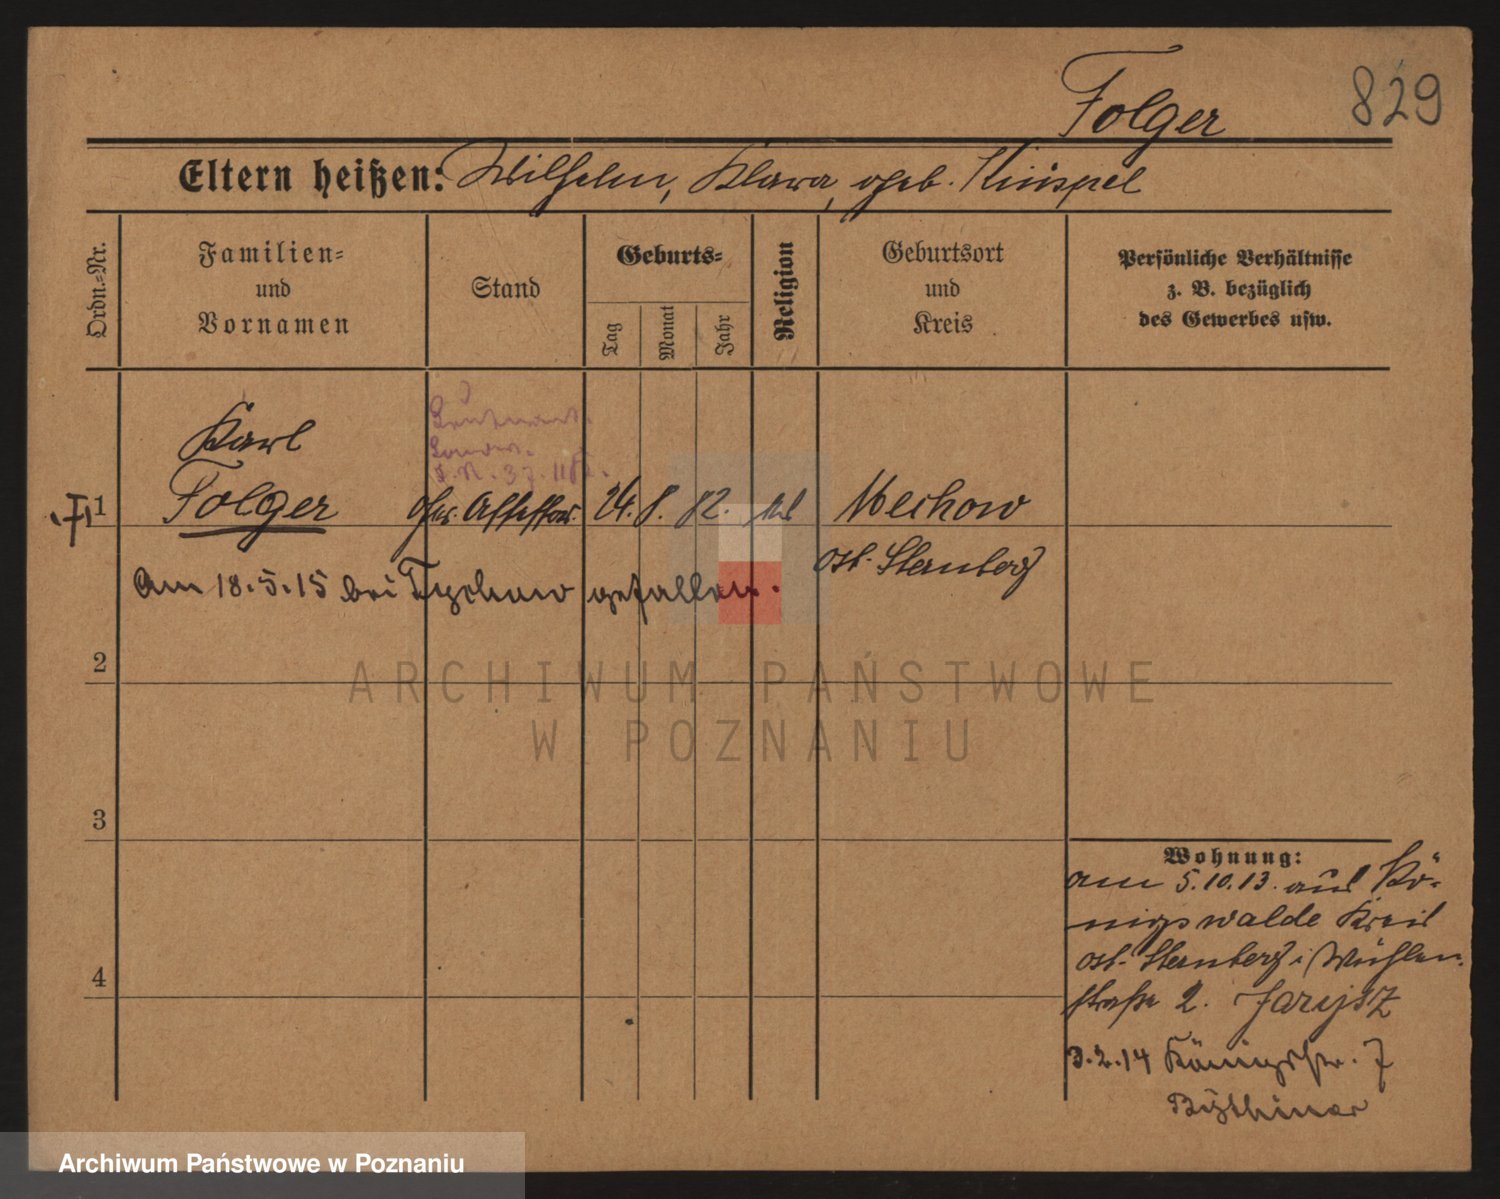 Folger
829
Eltern heißen: Wilhelm, Klara, geb.
Ordn.-Nr.
Familien-
und
Vornamen
Stand
Geburts-
Tag
Monat
Jahr
Religion
Geburtsort
und
Kreis
Persönliche Verhältnisse
z. B. bezüglich
des Gewerbes usw.
Karl
1 Folger Ger. Assessor 24. 8. 82. Mechow
Ost-Sternberg
Am 18.5.15 bei gefallen.
2
3
4
Wohnung:
am 5.10.13. aus Kö-
nigswalde Kreis
Ost-Sternberg i/ Mühlen-
straße 2.
3.2.14 Königstr. 7
ARCHIWUM PAŃSTWOWE
W POZNANIU
Archiwum Państwowe w Poznaniu